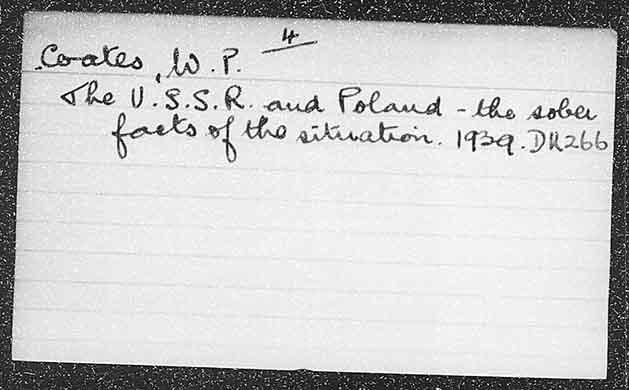 4
Coates, W.P.
The U.S.S.R. and Poland - the sober
facts of the situation. 1939. DK266